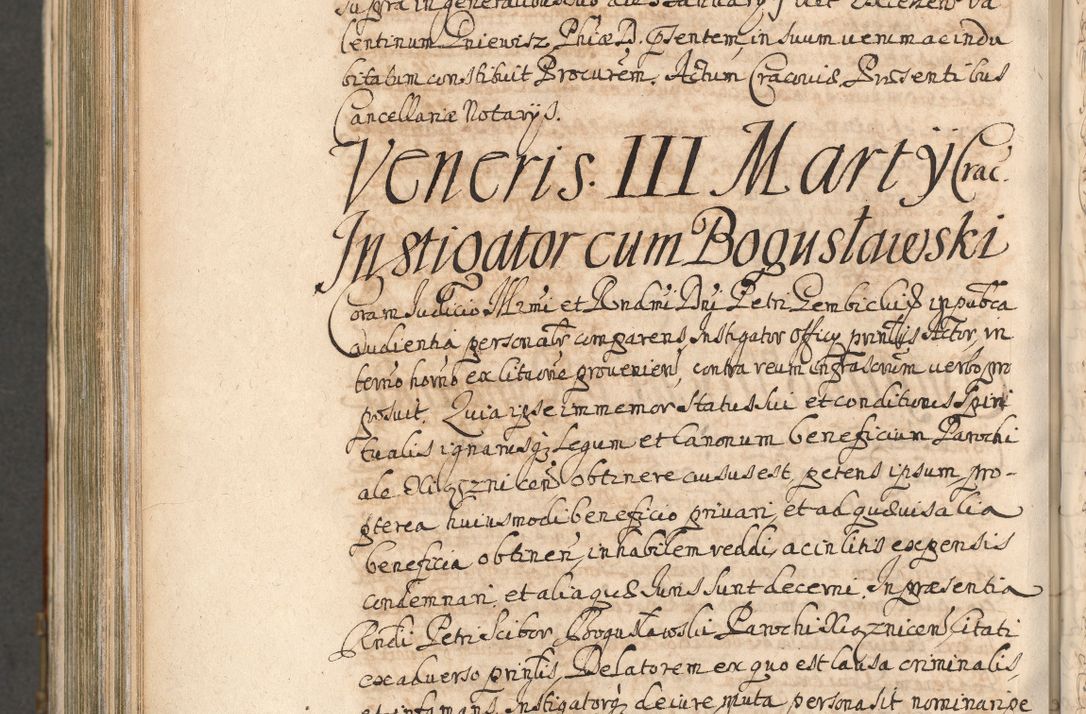 lentinum Kniewisz, Phiæ D. pSentem, in suum verum ac indu
bitatum constituit Procurem. Actum Cracoviæ. Præsentibus
Cancellariæ Notarijs.
Veneris. III Martÿ Crac.
Instigator cum Bogusławski
Coram Judicio Illrmi et Rndmi Dni Petri Gembicki in pubca
audientia personalr comparens Instigator officij prinlis Actor, in
termo horno ex litaone provenien, contra reum infrascrum verbo pro
posuit. Quia ipse immemor Status sui et conditionis Spiri
tualis ignarusq; Legum et Canonum beneficium Parochi
ale Xiąznicen obtinere ausus est, petens ipsum pro-
pterea huiusmodi beneficio privari, et ad quævis alia
beneficia obtinen, inhabilem reddi, ac in litis expensis
condemnari, et alia quæ Juris sunt decerni. In præsentia
Rndi Petri Scibor Bogusławski Parochi Xiąznicen Citati
ex adverso prinlis, Delatorem ex quo est causa criminalis,
et infamans, Instigatorq; de iure muta persona sit nominari pe